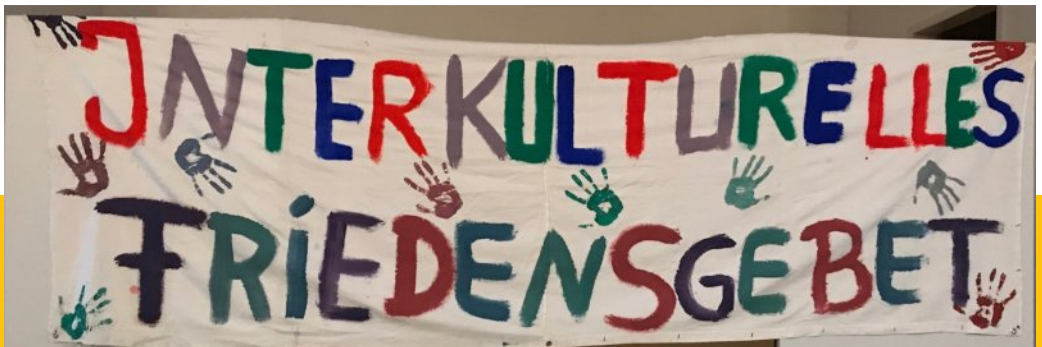 INTERKULTURELLES
FRIEDENSGEBET